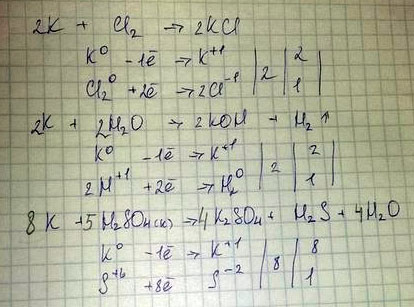 2K + Cl₂ → 2KCl
K⁰ -1ē → K⁺¹ | 2 | 2 |
Cl₂⁰ +2ē → 2Cl⁻¹ | 1 |
2K + 2H₂O → 2KOH + H₂↑
K⁰ -1ē → K⁺¹ | 2 | 2 |
2H⁺¹ +2ē → H₂⁰ | 1 |
8K + 5H₂SO₄(к) → 4K₂SO₄ + H₂S + 4H₂O
K⁰ -1ē → K⁺¹ | 8 | 8 |
S⁺⁶ +8ē S⁻² | 1 |